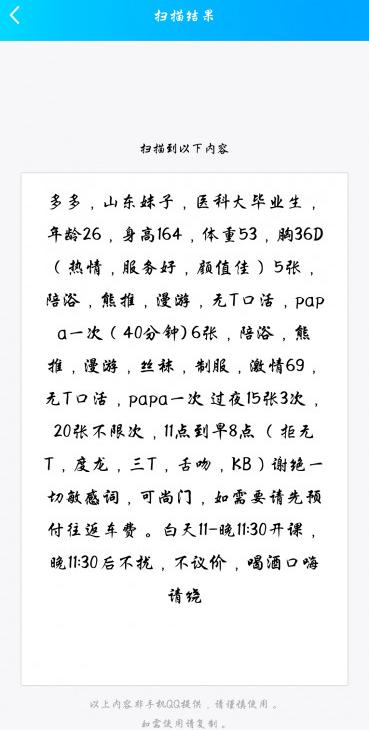 扫描结果
扫描到以下内容
多多，山东妹子，医科大毕业生，
年龄26，身高164，体重53，胸36D
（热情，服务好，颜值佳）5张，
陪浴，熊推，漫游，无T口活，pap
a一次（40分钟)6张，陪浴，熊
推，漫游，丝袜，制服，激情69，
无T口活，papa一次 过夜15张3次，
20张不限次，11点到早8点（ 拒无
T，度龙，三T，舌吻，KB）谢绝一
切敏感词，可尚门，如需要请先预
付往返车费 。白天11-晚11:30开课，
晚11:30后不扰，不议价，喝酒口嗨
请绕
以上内容非手机QQ提供，请谨慎使用。
如需使用请复制。